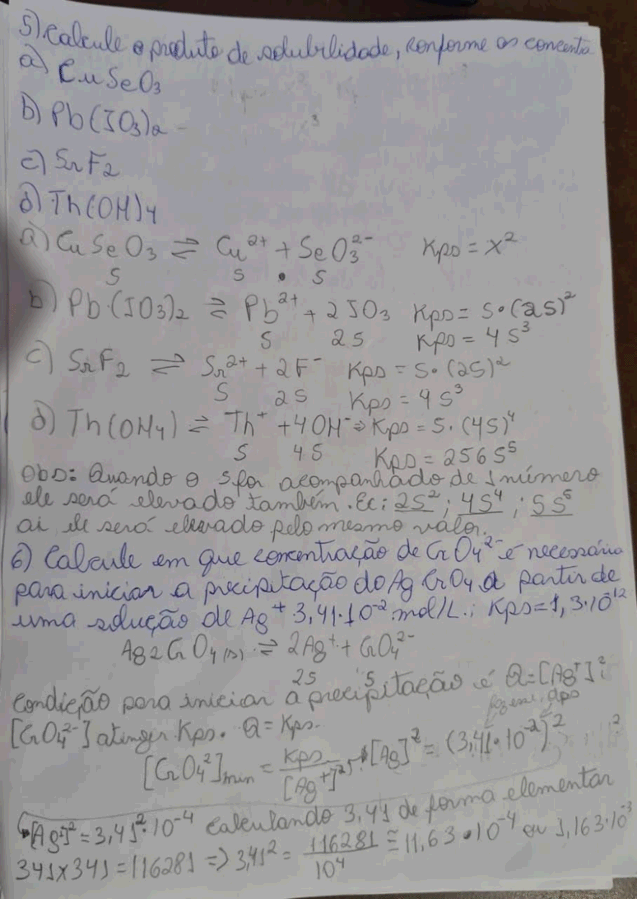 5) Calcule o produto de solubilidade, conforme os concenta
a) CuSeO3
b) Pb(IO3)2
c) SrF2
d) Th(OH)4
a) CuSeO3 ⇌ Cu²⁺ + SeO3²⁻ Kps = x²
S S • S
b) Pb(IO3)2 ⇌ Pb²⁺ + 2IO3 Kps = S·(2S)²
S 2S Kps = 4S³
c) SrF2 ⇌ Sr²⁺ + 2F⁻ Kps = S·(2S)²
S 2S Kps = 4S³
d) Th(OH4) ⇌ Th⁺ + 4OH⁻ ⇒ Kps = S·(4S)⁴
S 4S Kps = 256S⁵
Obs: Quando o S for acompanhado de 1 número
ele será elevado também. Ex: 2S²; 4S⁴; 5S⁵
ai ele será elevado pelo mesmo valor.
6) Calcule em que concentração de CrO4²⁻ é necessário
para iniciar a precipitação do AgCrO4 a partir de
uma solução de Ag⁺ 3,41·10⁻² mol/L.; Kps=1,3·10⁻¹²
Ag2CrO4(s) ⇌ 2Ag⁺ + CrO4²⁻
2S S
Condição para iniciar a precipitação é Q=[Ag⁺]²
[CrO4²⁻] atingir Kps. Q = Kps.
[CrO4²⁻]min = Kps/[Ag⁺]² [Ag]² = (3,41·10⁻²)²
[Ag⁺]² = 3,41²·10⁻⁴ Calculando 3,41 de forma elementar
341x341 = 116281 => 3,41² = 116281/10⁴ ≅ 11,63·10⁻⁴ ou 1,163·10⁻³